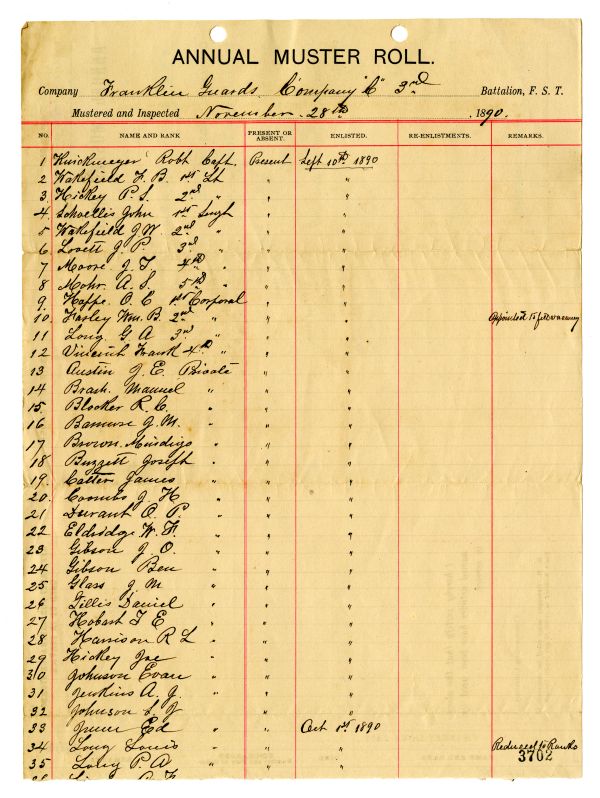 ANNUAL MUSTER ROLL.
Company Franklin Guards Company "C" 3rd Battalion, F. S. T.
Mustered and Inspected November 28th 1890.
NO. NAME AND RANK PRESENT OR ABSENT. ENLISTED. RE-ENLISTMENTS. REMARKS.
1 Knickmeyer Robt Capt. Present Sept 10th 1890
2 Wakefield F. B. 1st Lt " "
3 Hickey P. S. 2nd " " "
4 John 1st Sergt " "
5 Wakefield J W. 2nd " " "
6 Lovett J. P. 3rd " " "
7 Moore J. T. 4th " " "
8 Mohr A. S. 5th " " "
9 Hoppe O. E 1st Corporal " "
10. Harley Wm. B. 2nd " " " Appointed to fill vacancy
11 Long G. A 3rd " " "
12 Vincent Frank 4th " " "
13 Austin J. E. Private " "
14 Brash Manuel " " "
15 Blocker R. C. " " "
16 J. M. " " "
17 Brown " " "
18 Buzzett Joseph " " "
19. James " " "
20. Coombs J H " " "
21 Durant O. P " " "
22 Eldridge W. F. " " "
23 Gibson J. O. " " "
24 Gibson Ben " " "
25 Glass J M " " "
26 Gillis Daniel " " "
27 Hobart T E " " "
28 Harrison R L " " "
29 Hickey Joe " " "
30 Johnson Evan " " "
31 Jenkins A. J. " " "
32 Johnson " " "
33 Ed " " Oct 1st 1890
34 Long Louis " " " Reduced to Ranks
3702
35 Long P. A " " "